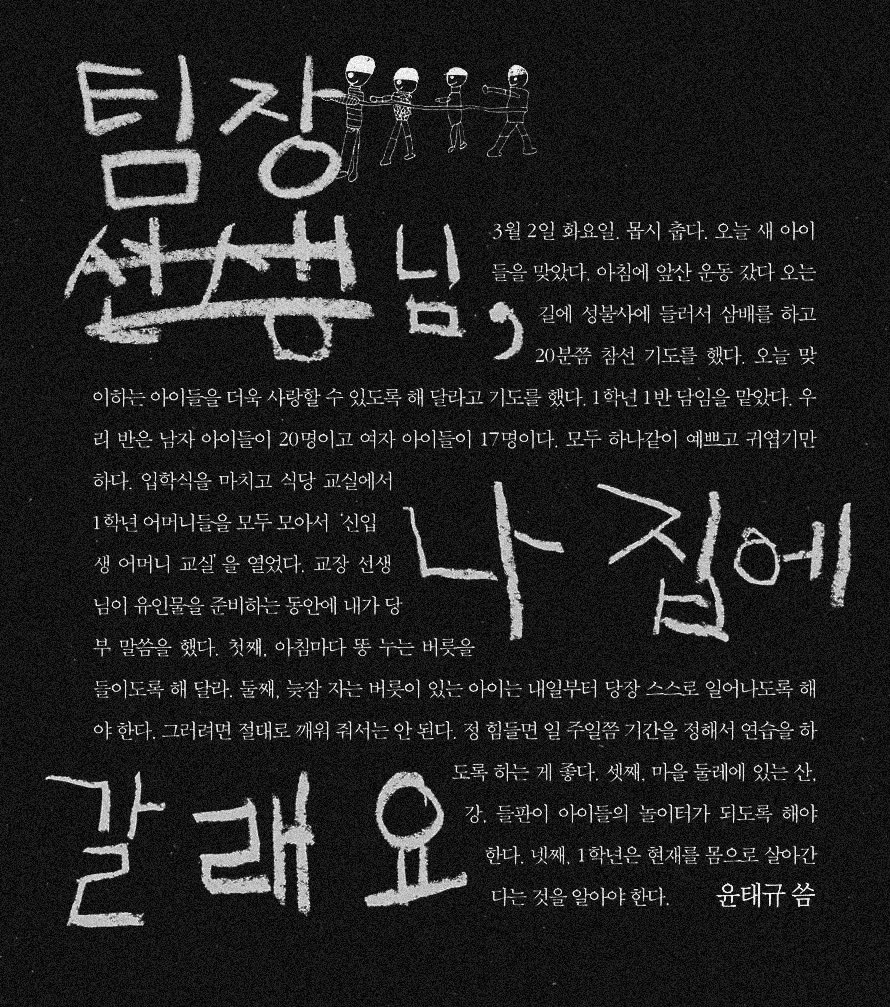 팀장
선생님,
나 집에
갈래요
3월 2일 화요일. 몹시 춥다. 오늘 새 아이
들을 맞았다. 아침에 앞산 운동 갔다 오는
길에 성불사에 들러서 삼배를 하고
20분쯤 참선 기도를 했다. 오늘 맞
이하는 아이들을 더욱 사랑할 수 있도록 해 달라고 기도를 했다. 1학년 1반 담임을 맡았다. 우
리 반은 남자 아이들이 20명이고 여자 아이들이 17명이다. 모두 하나같이 예쁘고 귀엽기만
하다. 입학식을 마치고 식당 교실에서
1학년 어머니들을 모두 모아서 ‘신입
생 어머니 교실’을 열었다. 교장 선생
님이 유인물을 준비하는 동안에 내가 당
부 말씀을 했다. 첫째, 아침마다 똥 누는 버릇을
들이도록 해 달라. 둘째, 늦잠 자는 버릇이 있는 아이는 내일부터 당장 스스로 일어나도록 해
야 한다. 그러려면 절대로 깨워 줘서는 안 된다. 정 힘들면 일 주일쯤 기간을 정해서 연습을 하
도록 하는 게 좋다. 셋째, 마을 둘레에 있는 산,
강, 들판이 아이들의 놀이터가 되도록 해야
한다. 넷째, 1학년은 현재를 몸으로 살아간
다는 것을 알아야 한다. 윤태규 씀